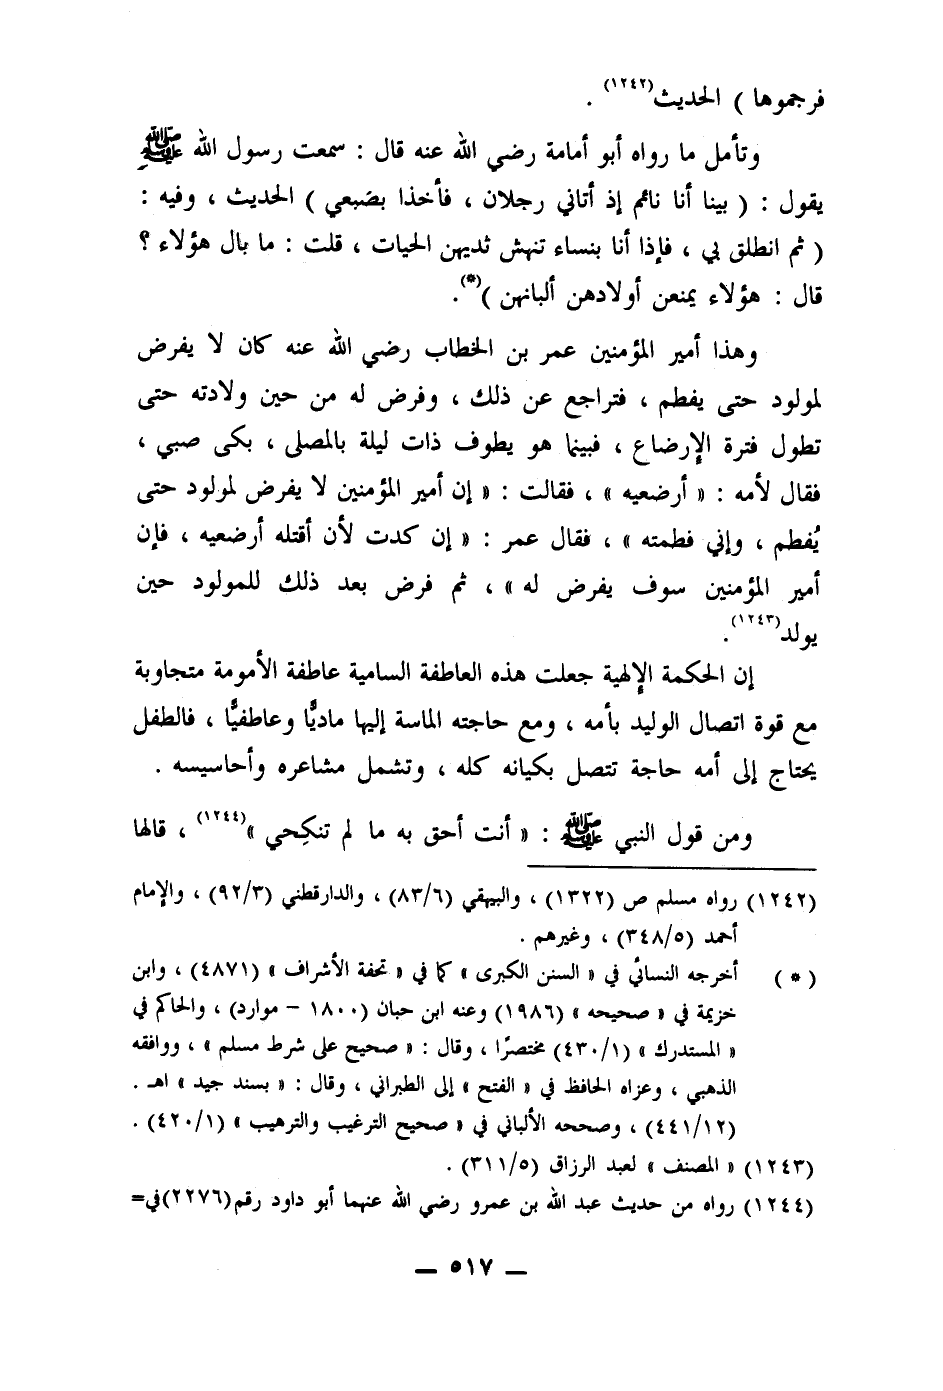 فرجموها ) الحديث(١٢٤٢) .
وتأمل ما رواه أبو أمامة رضي الله عنه قال : سمعت رسول الله ﷺ
يقول : ( بينا أنا نائم إذ أتاني رجلان ، فأخذا بضَبعي ) الحديث ، وفيه :
( ثم انطلق بي ، فإذا أنا بنساء تنهش ثديهن الحيات ، قلت : ما بال هؤلاء ؟
قال : هؤلاء يمنعن أولادهن ألبانهن )(*).
وهذا أمير المؤمنين عمر بن الخطاب رضي الله عنه كان لا يفرض
لمولود حتى يفطم ، فتراجع عن ذلك ، وفرض له من حين ولادته حتى
تطول فترة الإرضاع ، فبينما هو يطوف ذات ليلة بالمصلى ، بكى صبي ،
فقال لأمه : « أرضعيه » ، فقالت : « إن أمير المؤمنين لا يفرض لمولود حتى
يُفطم ، وإني فطمته » ، فقال عمر : « إن كدت لأن أقتله أرضعيه ، فإن
أمير المؤمنين سوف يفرض له » ، ثم فرض بعد ذلك للمولود حين
يولد(١٢٤٣).
إن الحكمة الإلهية جعلت هذه العاطفة السامية عاطفة الأمومة متجاوبة
مع قوة اتصال الوليد بأمه ، ومع حاجته الماسة إليها ماديًّا وعاطفيًّا ، فالطفل
يحتاج إلى أمه حاجة تتصل بكيانه كله ، وتشمل مشاعره وأحاسيسه .
ومن قول النبي ﷺ : « أنت أحق به ما لم تنكِحي »(١٢٤٤) ، قالها
(١٢٤٢) رواه مسلم ص (١٣٢٢) ، والبيهقي (٨٣/٦) ، والدارقطني (٩٢/٣) ، والإمام
أحمد (٣٤٨/٥) ، وغيرهم .
( * ) أخرجه النسائي في « السنن الكبرى » كما في « تحفة الأشراف » (٤٨٧١) ، وابن
خزيمة في « صحيحه » (١٩٨٦) وعنه ابن حبان (١٨٠٠ – موارد) ، والحاكم في
« المستدرك » (٤٣٠/١) مختصرًا ، وقال : « صحيح على شرط مسلم » ، ووافقه
الذهبي ، وعزاه الحافظ في « الفتح » إلى الطبراني ، وقال : « بسند جيد » اهـ .
(٤٤١/١٢) ، وصححه الألباني في « صحيح الترغيب والترهيب » (٤٢٠/١) .
(١٢٤٣) « المصنف » لعبد الرزاق (٣١١/٥) .
(١٢٤٤) رواه من حديث عبد الله بن عمرو رضي الله عنهما أبو داود رقم (٢٢٧٦)في=
— ٥١٧ —